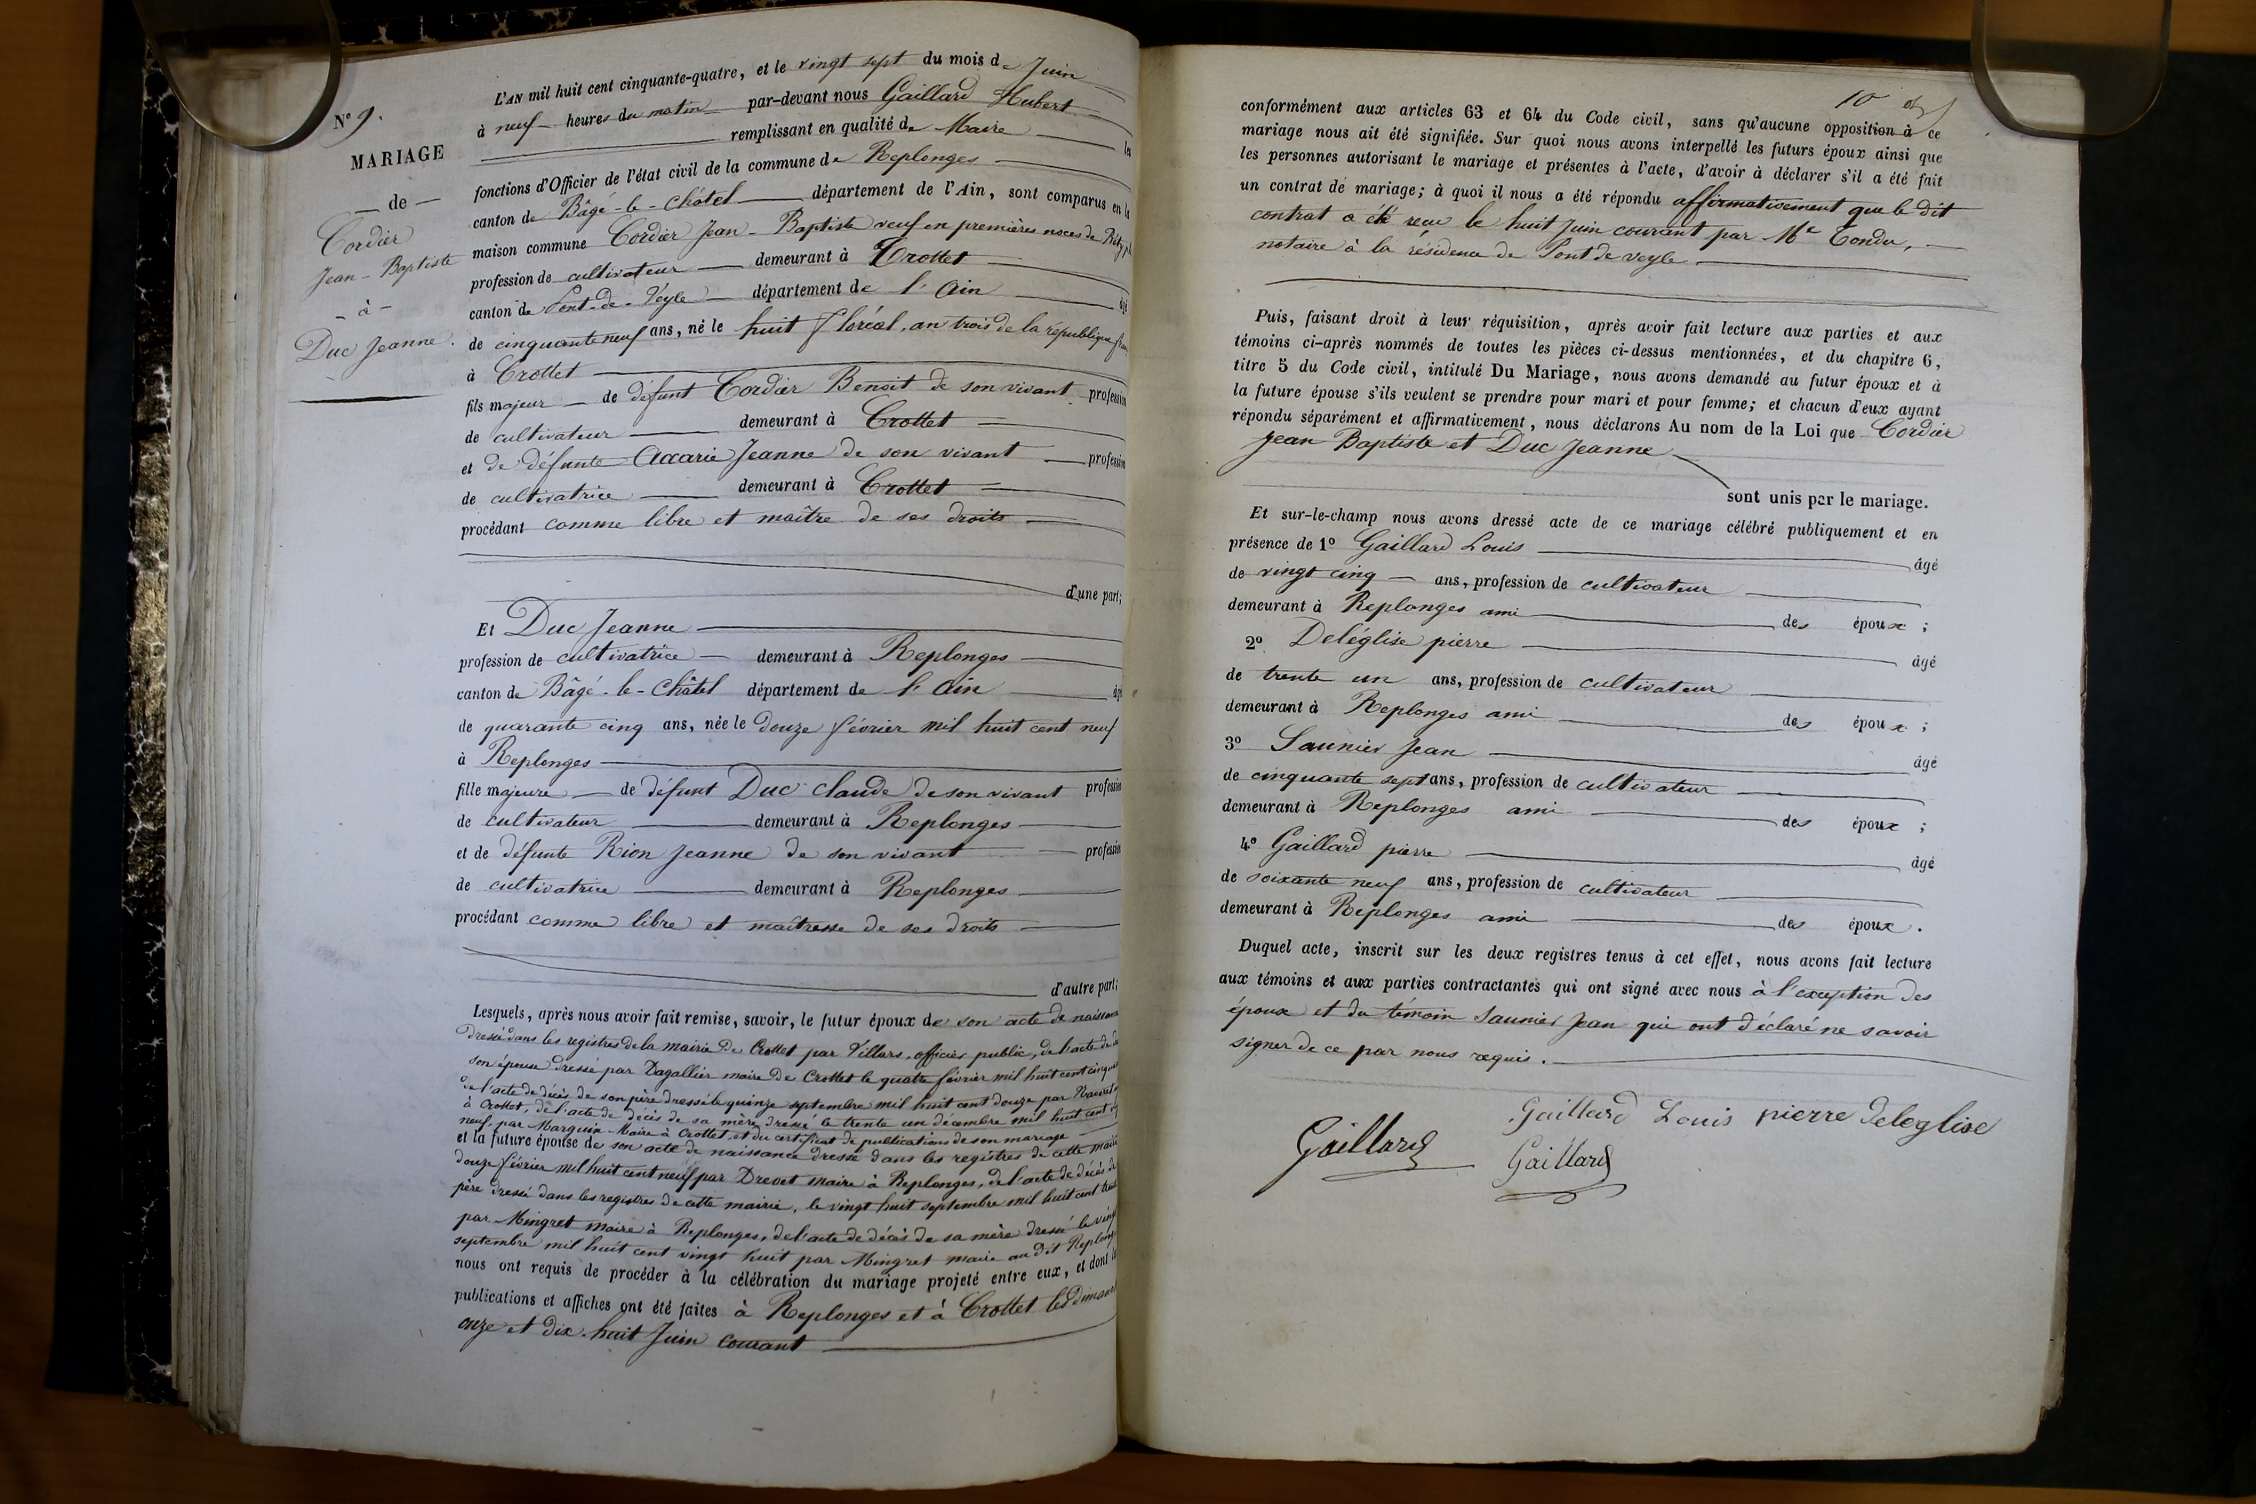 N° 9.
MARIAGE
— de —
Cordier
Jean-Baptiste
- à -
Duc Jeanne.
L'AN mil huit cent cinquante-quatre, et le vingt sept du mois de Juin
à neuf heures du matin par-devant nous Gaillard Hubert
remplissant en qualité de Maire les
fonctions d'Officier de l'état civil de la commune de Replonges
canton de Bâgé-le-Châtel département de l'Ain, sont comparus en la
maison commune Cordier Jean-Baptiste veuf en premières noces de
profession de cultivateur demeurant à Crottet
canton de Pont-de-Veyle département de l'Ain âgé
de cinquante neuf ans, né le huit floréal, an trois de la république
à Crottet
fils majeur de défunt Cordier Benoit de son vivant profession
de cultivateur demeurant à Crottet
et de défunte Accarie Jeanne de son vivant profession
de cultivatrice demeurant à Crottet
procédant comme libre et maître de ses droits
d'une part;
Et Duc Jeanne
profession de cultivatrice demeurant à Replonges
canton de Bâgé-le-Châtel département de l'Ain âgé
de quarante cinq ans, née le douze février mil huit cent neuf
à Replonges
fille majeure de défunt Duc Claude de son vivant profession
de cultivateur demeurant à Replonges
et de défunte Rion Jeanne de son vivant profession
de cultivatrice demeurant à Replonges
procédant comme libre et maîtresse de ses droits
d'autre part;
Lesquels, après nous avoir fait remise, savoir, le futur époux de son acte de naissance
dressé dans les registres de la mairie de Crottet par Villars, officier public, de l'acte de
son épouse dressé par Dagallier maire de Crottet le quatre février mil huit cent
de l'acte de décès de son père dressé le quinze septembre mil huit cent douze par
à Crottet, de l'acte de décès de sa mère dressé le trente un décembre mil huit cent
neuf par Marguin Maire à Crottet, et du certificat de publications de son mariage
et la future épouse de son acte de naissance dressé dans les registres de cette mairie
douze février mil huit cent neuf par Drevet maire à Replonges, de l'acte de décès de
père dressé dans les registres de cette mairie, le vingt huit septembre mil huit cent
par Mingret maire à Replonges, de l'acte de décès de sa mère dressé le
septembre mil huit cent vingt huit par Mingret maire au dit Replonges
nous ont requis de procéder à la célébration du mariage projeté entre eux, et dont les
publications et affiches ont été faites à Replonges et à Crottet les
onze et dix-huit Juin courant
10
conformément aux articles 63 et 64 du Code civil, sans qu'aucune opposition à ce
mariage nous ait été signifiée. Sur quoi nous avons interpellé les futurs époux ainsi que
les personnes autorisant le mariage et présentes à l'acte, d'avoir à déclarer s'il a été fait
un contrat de mariage; à quoi il nous a été répondu affirmativement que le dit
contrat a été reçu le huit Juin courant par Me Tondu,
notaire à la résidence de Pont de veyle
Puis, faisant droit à leur réquisition, après avoir fait lecture aux parties et aux
témoins ci-après nommés de toutes les pièces ci-dessus mentionnées, et du chapitre 6,
titre 5 du Code civil, intitulé Du Mariage, nous avons demandé au futur époux et à
la future épouse s'ils veulent se prendre pour mari et pour femme; et chacun d'eux ayant
répondu séparément et affirmativement, nous déclarons Au nom de la Loi que Cordier
Jean Baptiste et Duc Jeanne
sont unis par le mariage.
Et sur-le-champ nous avons dressé acte de ce mariage célébré publiquement et en
présence de 1° Gaillard Louis âgé
de vingt cinq ans, profession de cultivateur
demeurant à Replonges ami des époux;
2° Deléglise pierre âgé
de trente un ans, profession de cultivateur
demeurant à Replonges ami des époux;
3° Saunier Jean âgé
de cinquante sept ans, profession de cultivateur
demeurant à Replonges ami des époux;
4° Gaillard pierre âgé
de soixante neuf ans, profession de cultivateur
demeurant à Replonges ami des époux.
Duquel acte, inscrit sur les deux registres tenus à cet effet, nous avons fait lecture
aux témoins et aux parties contractantes qui ont signé avec nous à l'exception des
époux et du témoin Saunier Jean qui ont déclaré ne savoir
signer de ce par nous requis.
Gaillard Louis pierre deleglise
Gaillard Gaillard